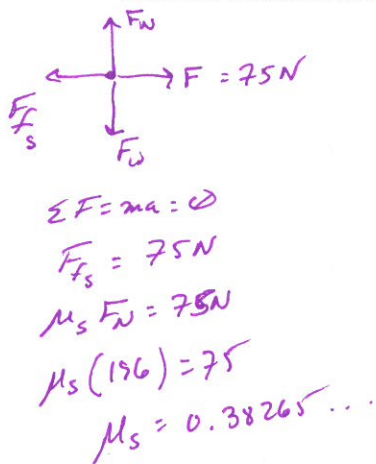 F_N
F = 75N
F_fs
F_w
ΣF = ma = ∅
F_fs = 75N
μ_s F_N = 75N
μ_s (196) = 75
μ_s = 0.38265...